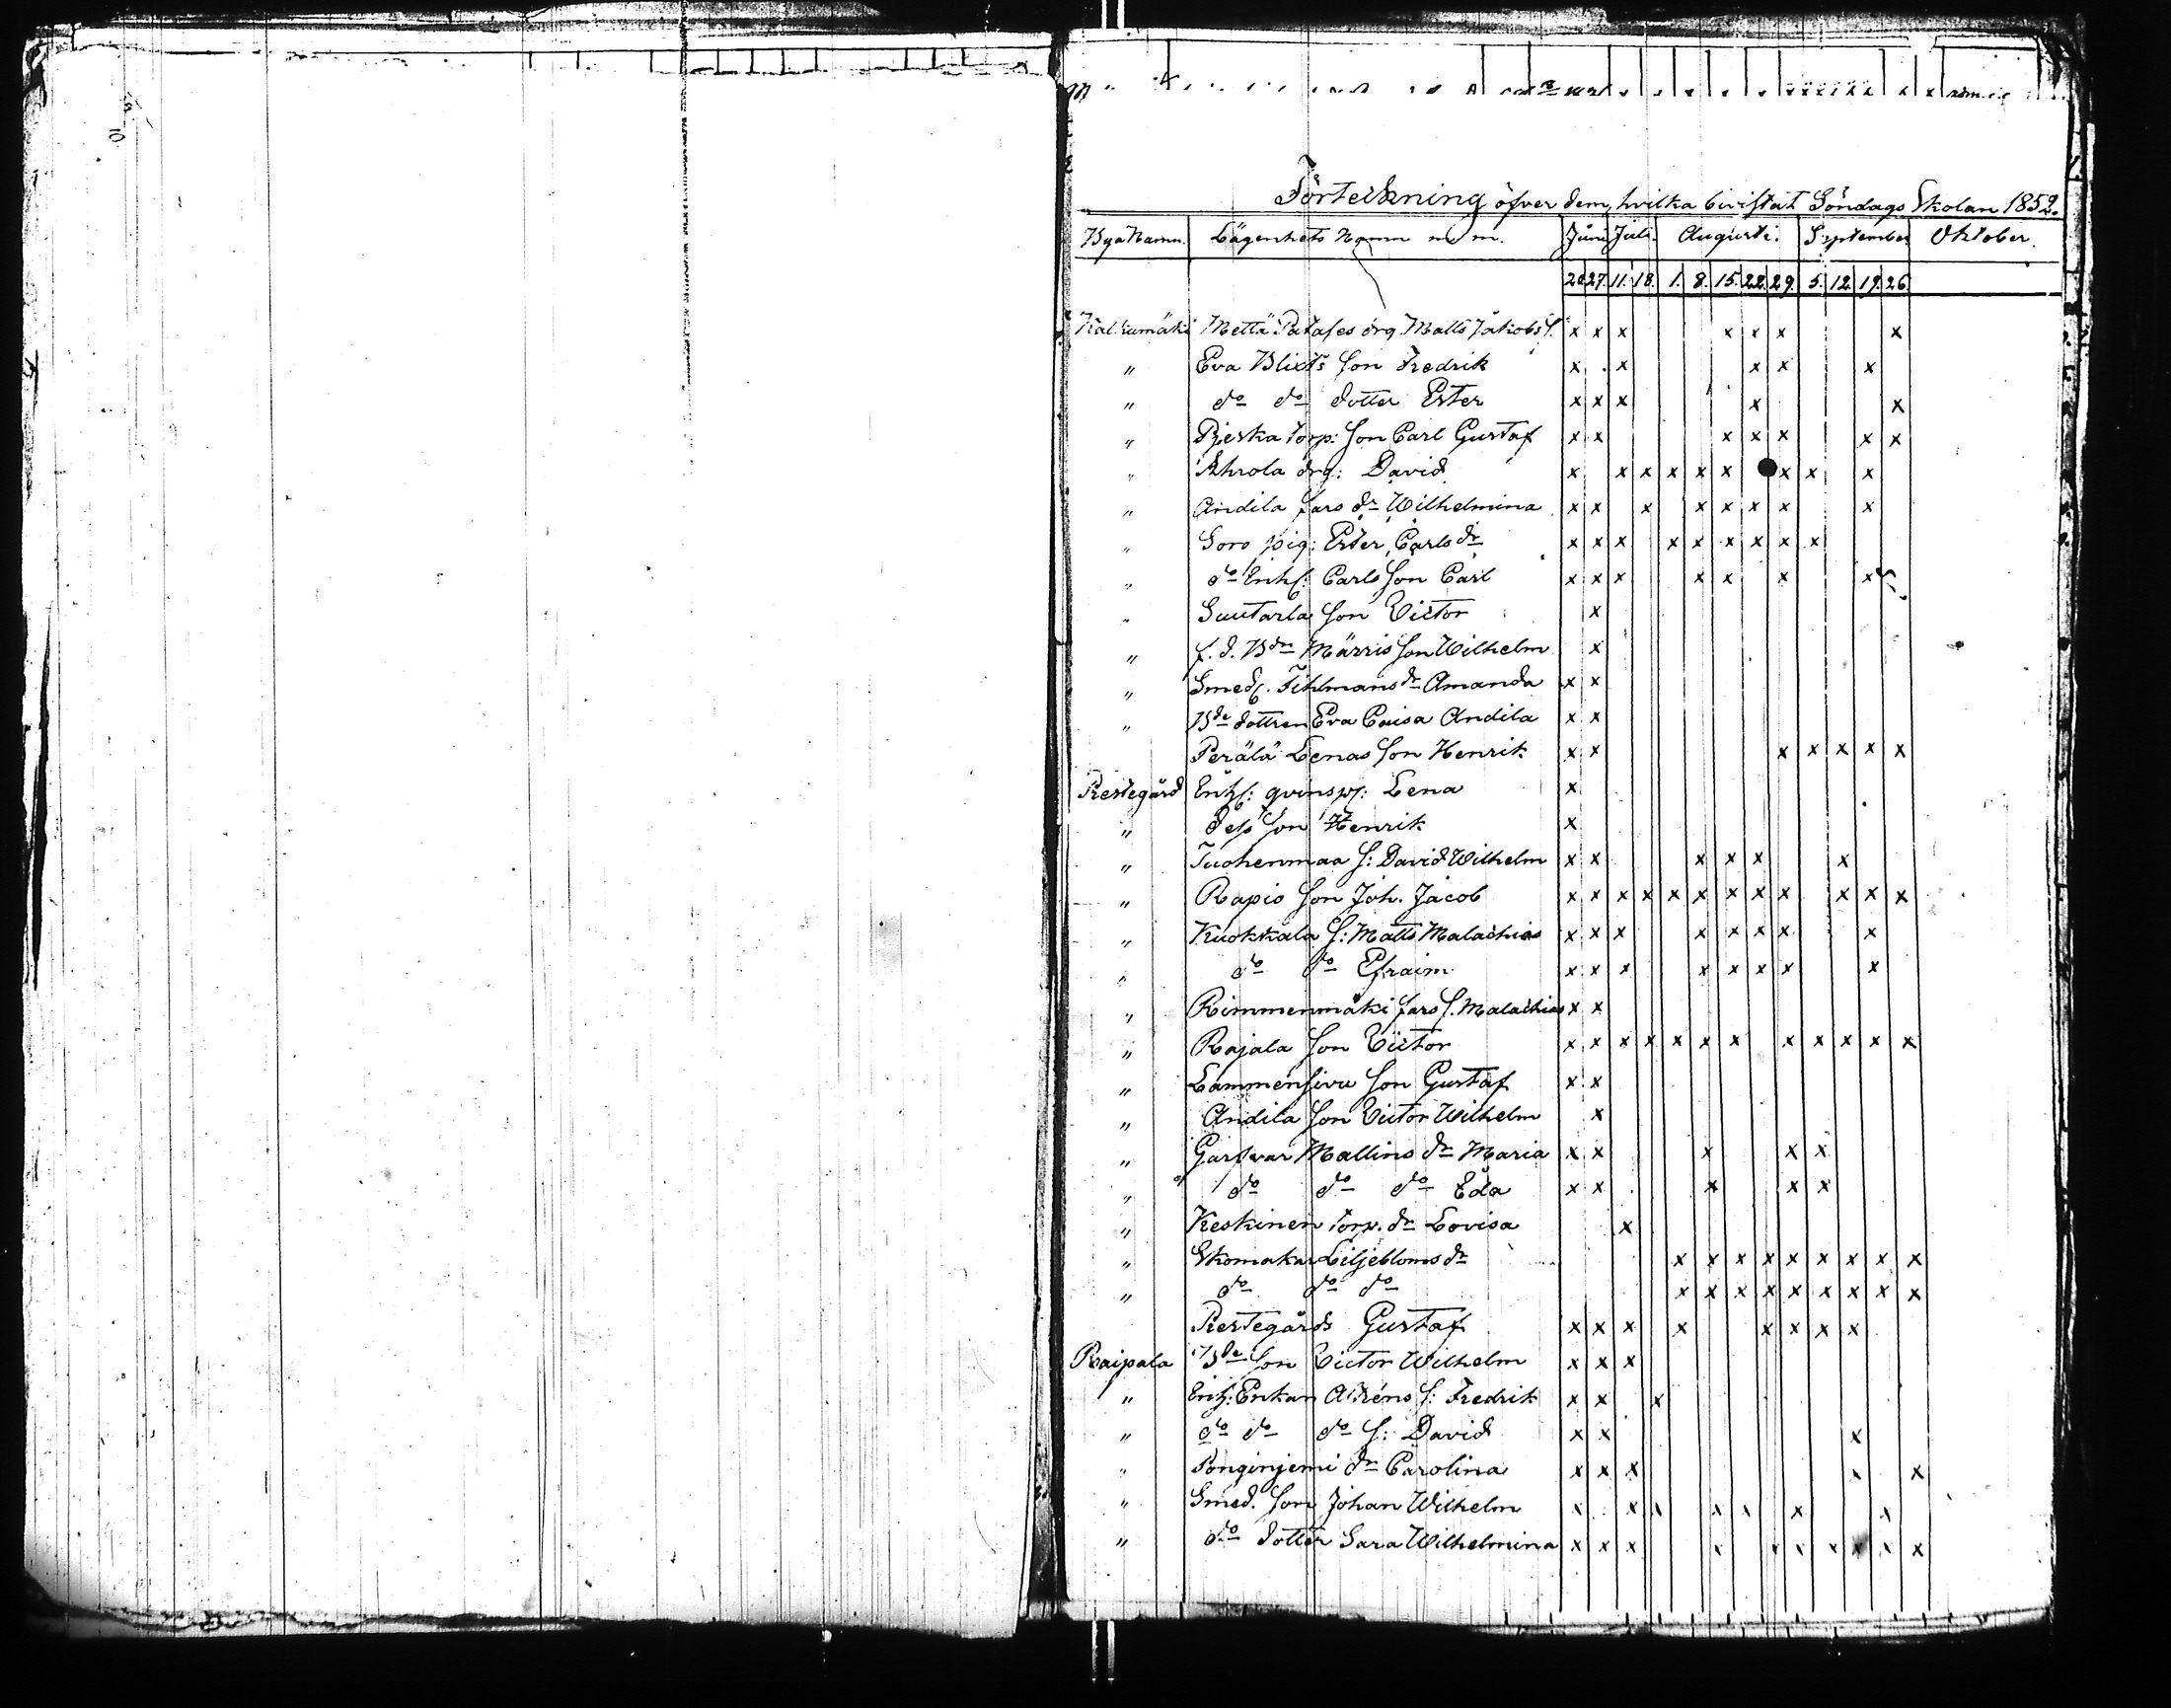 Förteckning öfver dem, hvilka bivistat Söndags Skolan 1852.
Bya Namn. Lägenhets Namn m. m. Juni Juli. Augusti. September Oktober.
20 27. 11. 18. 1. 8. 15. 22. 29. 5. 12. 19. 26.
Kalkumäki Mettä drg. Matts Jakobs S. x x x x x x x
" Eva Blixts Son Fredrik x x x x x
" do do dotter Ester x x x x x
" Torp: Son Carl Gustaf x x x x x x x
" drg: David x x x x x x x x x
" Andila fars dr Wilhelmina x x x x x x x x
" Soro pig: Ester Carls dr x x x x x x x x x
" do Enkl: Carls Son Carl x x x x x x x
" Suutarla Son Victor x
" f. d. Bdn Märris Son Wilhelm x
" Smeds. Tihlmans dr Amanda x x
" Bde dottren Eva Caisa Andila x x
Perälä Lenas Son Henrik x x x x x x x
Prestegård qvinsp: Lena x
" dess Son Henrik x
" Tuohenmaa S: David Wilhelm x x x x x x
" Rapio Son Joh. Jacob x x x x x x x x x x x x
" Kuokkala S: Matts Malachias x x x x x x x x
" do do Efraim x x x x x x x x
" Rimmenmäki fars S. Malachias x x
" Rajala Son Victor x x x x x x x x x x x x
" Lammensivu Son Gustaf x x
" Andila Son Victor Wilhelm x
" Garfvar Mallins dr Maria x x x x x
" do do do Eda x x x x x
" Keskinen Torp. dr Lovisa x
" Skomakar Liljebloms dr x x x x x x x x x
" do do do x x x x x x x x x
Prestegårds Gustaf x x x x x x x x
Raipala Bde Son Victor Wilhelm x x x
" Enkan S: Fredrik x x x
" do do do S: David x x x
" dr Carolina x x x x x
" Smed. Son Johan Wilhelm x x x x x x x
" do dotter Sara Wilhelmina x x x x x x x x x x